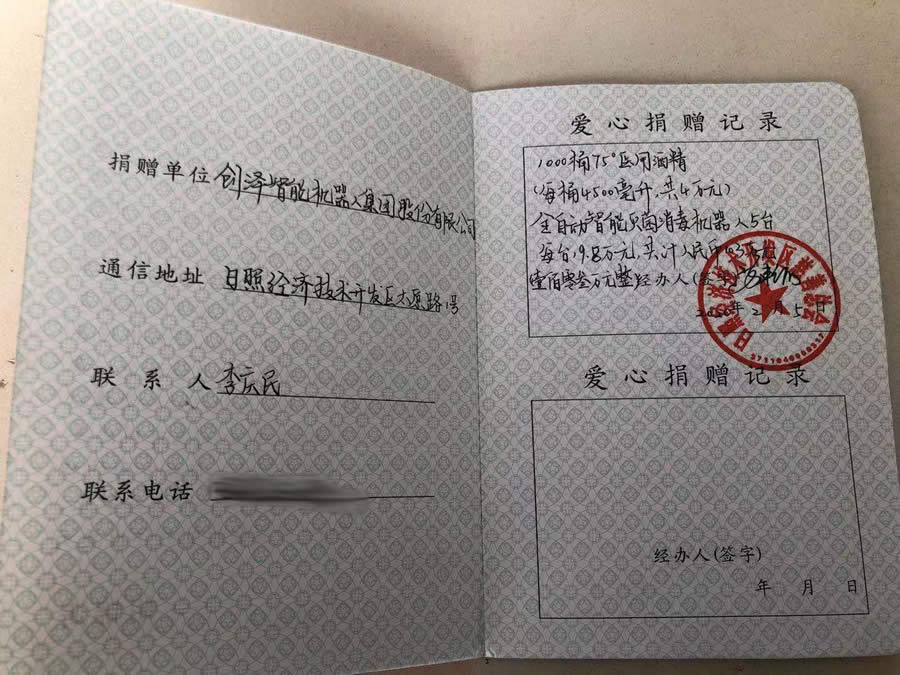 捐赠单位 创泽智能机器人集团股份有限公司
通信地址 日照经济技术开发区太原路号
联系人 李庆民
联系电话
爱心捐赠记录
1000桶75°医用酒精
(每桶4500毫升,共4万元)
全自动智能灭菌消毒机器人5台
每台19.8万元,共计人民币103万元
壹佰零叁万元整 经办人(签字)
2020年2月5日
爱心捐赠记录
经办人(签字)
年 月 日